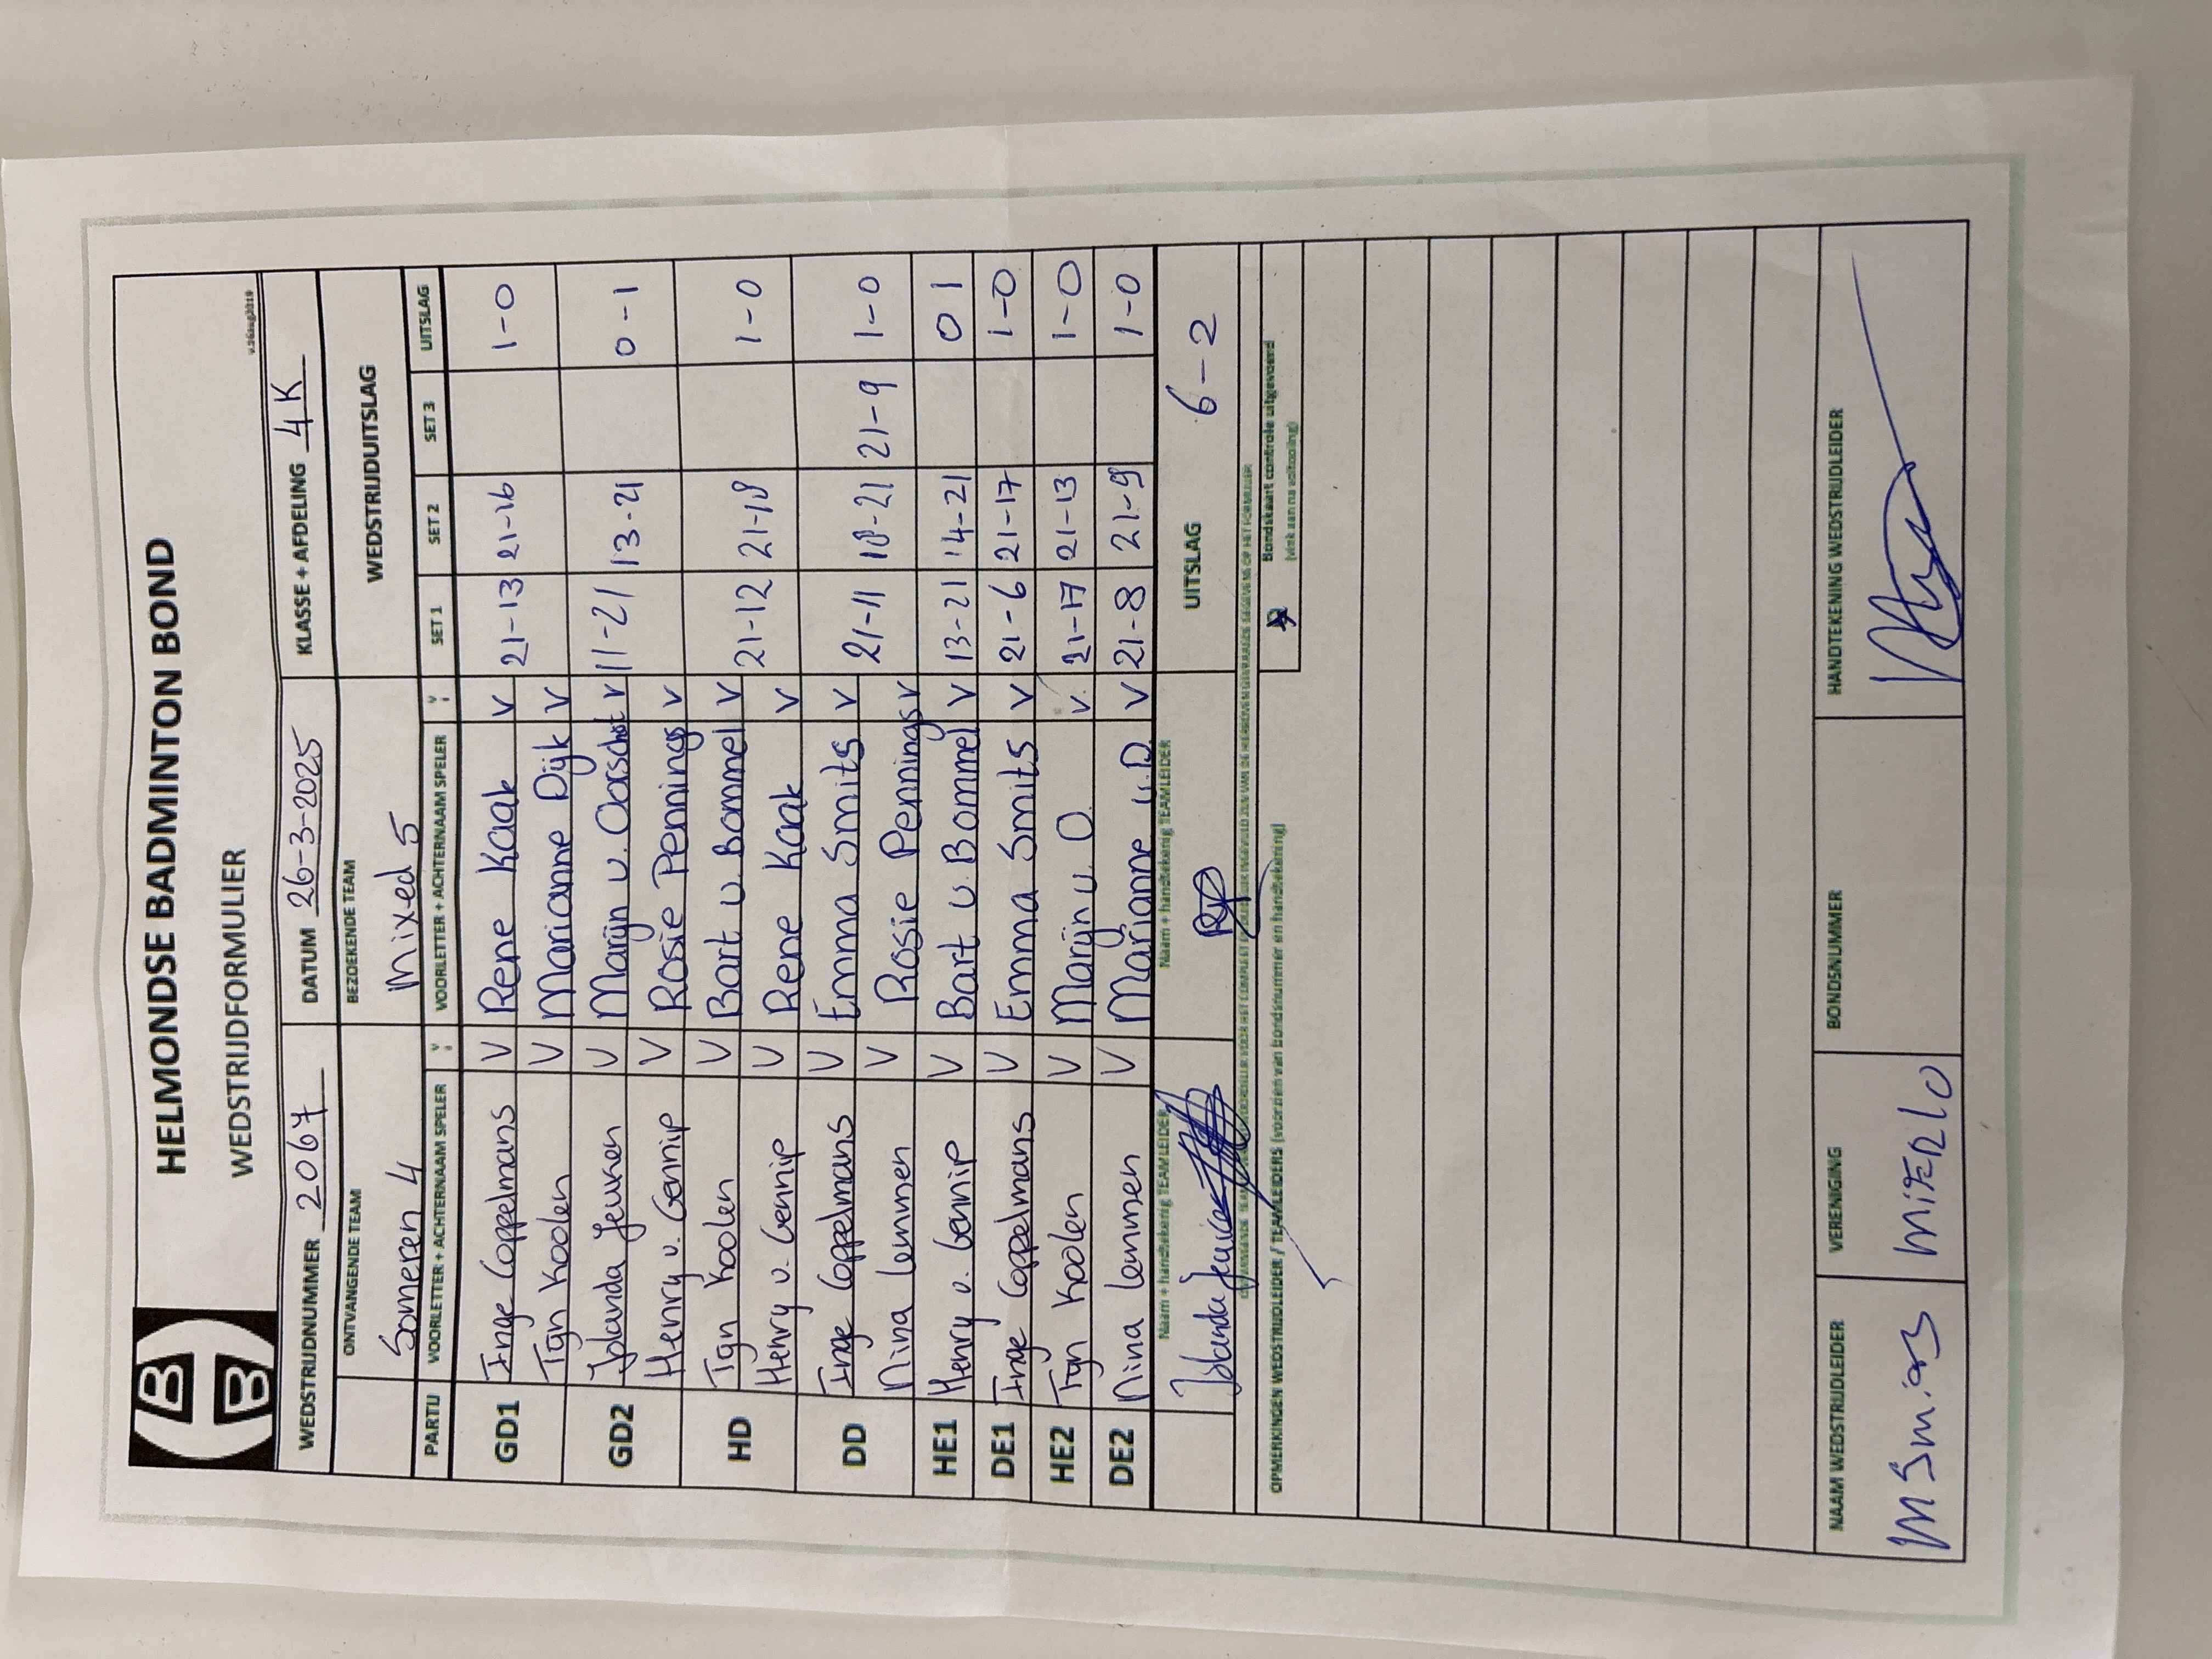 HELMONDSE BADMINTON BOND
WEDSTRIJDFORMULIER
BB
WEDSTRIJDNUMMER 2067 DATUM 26-3-2025 KLASSE + AFDELING 4K
ONTVANGENDE TEAM BEZOEKENDE TEAM WEDSTRIJDUITSLAG
Someren 4 Mixed 5
PARTIJ VOORLETTER + ACHTERNAAM SPELER V VOORLETTER + ACHTERNAAM SPELER V SET 1 SET 2 SET 3 UITSLAG
GD1 Inge Coppelmans V Rene Kaak V 21-13 21-16 1-0
Tijn Koolen V Marianne Dijk V
GD2 Jolanda Jeunen V Marijn v. Oorschot V 11-21 13-21 0-1
Henry v. Gennip V Rosie Pennings V
HD Tijn Koolen V Bart v. Bommel V 21-12 21-18 1-0
Henry v. Gennip V Rene Kaak V
DD Inge Coppelmans V Emma Smits V 21-11 18-21 21-9 1-0
Nina Lemmen V Rosie Pennings V
HE1 Henry v. Gennip V Bart v. Bommel V 13-21 14-21 0 1
DE1 Inge Coppelmans V Emma Smits V 21-6 21-17 1-0
HE2 Tijn Koolen V Marijn v. O. V. 21-17 21-13 1-0
DE2 Nina Lemmen V Marianne v.D. V 21-8 21-9 1-0
Naam + handtekenig TEAMLEIDER Naam + handtekenig TEAMLEIDER UITSLAG 6-2
Jolanda
RP
OPMERKINGEN WEDSTRIJDLEIDER / TEAMLEIDERS (voorzien van bondsnummer en handtekening) Bondskaart controle uitgevoerd
(vink aan na voltooiing)
NAAM WEDSTRIJDLEIDER VERENIGING BONDSNUMMER HANDTEKENING WEDSTRIJDLEIDER
MIERLO